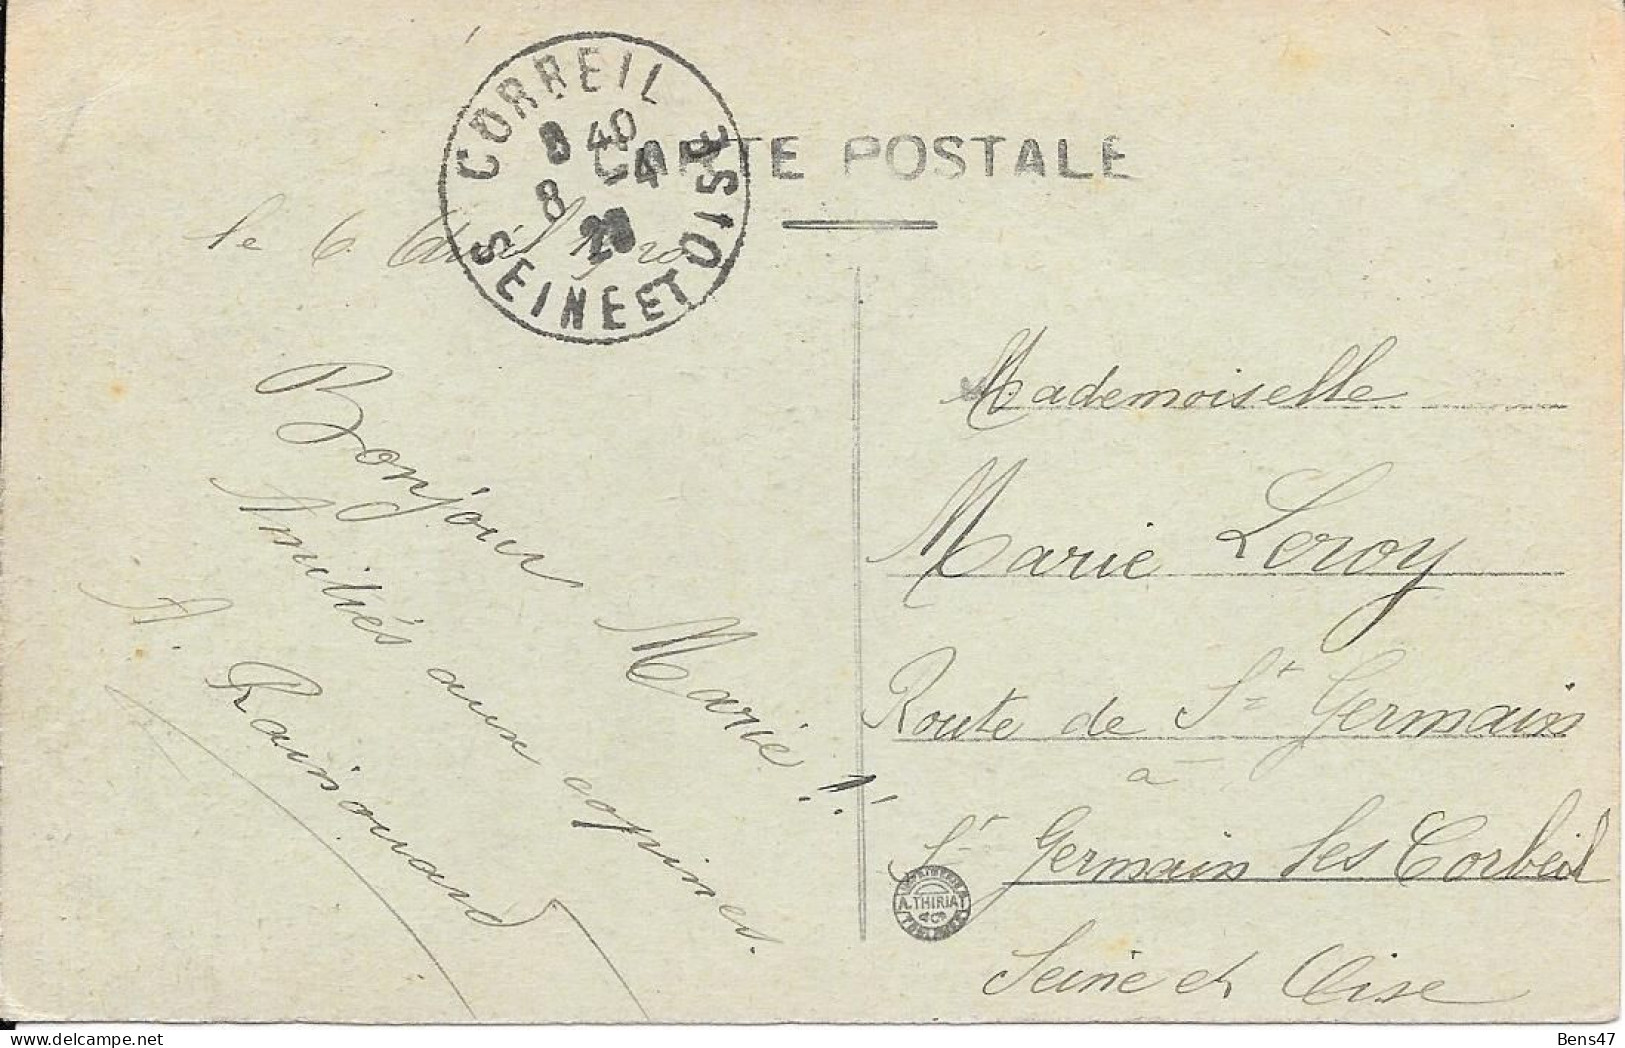 CARTE POSTALE
CORBEIL
8 40
8 -4
20
SEINE ET OISE
le 6 Avril 1920
Bonjour Marie !!
Amitiés aux copines.
A. Rainouard
Mademoiselle
Marie Leroy
Route de St Germain
à
St Germain les Corbeil
Seine et Oise
IMPRIMERIE
A. THIRIAT
& Cie
TOULOUSE
Bens47